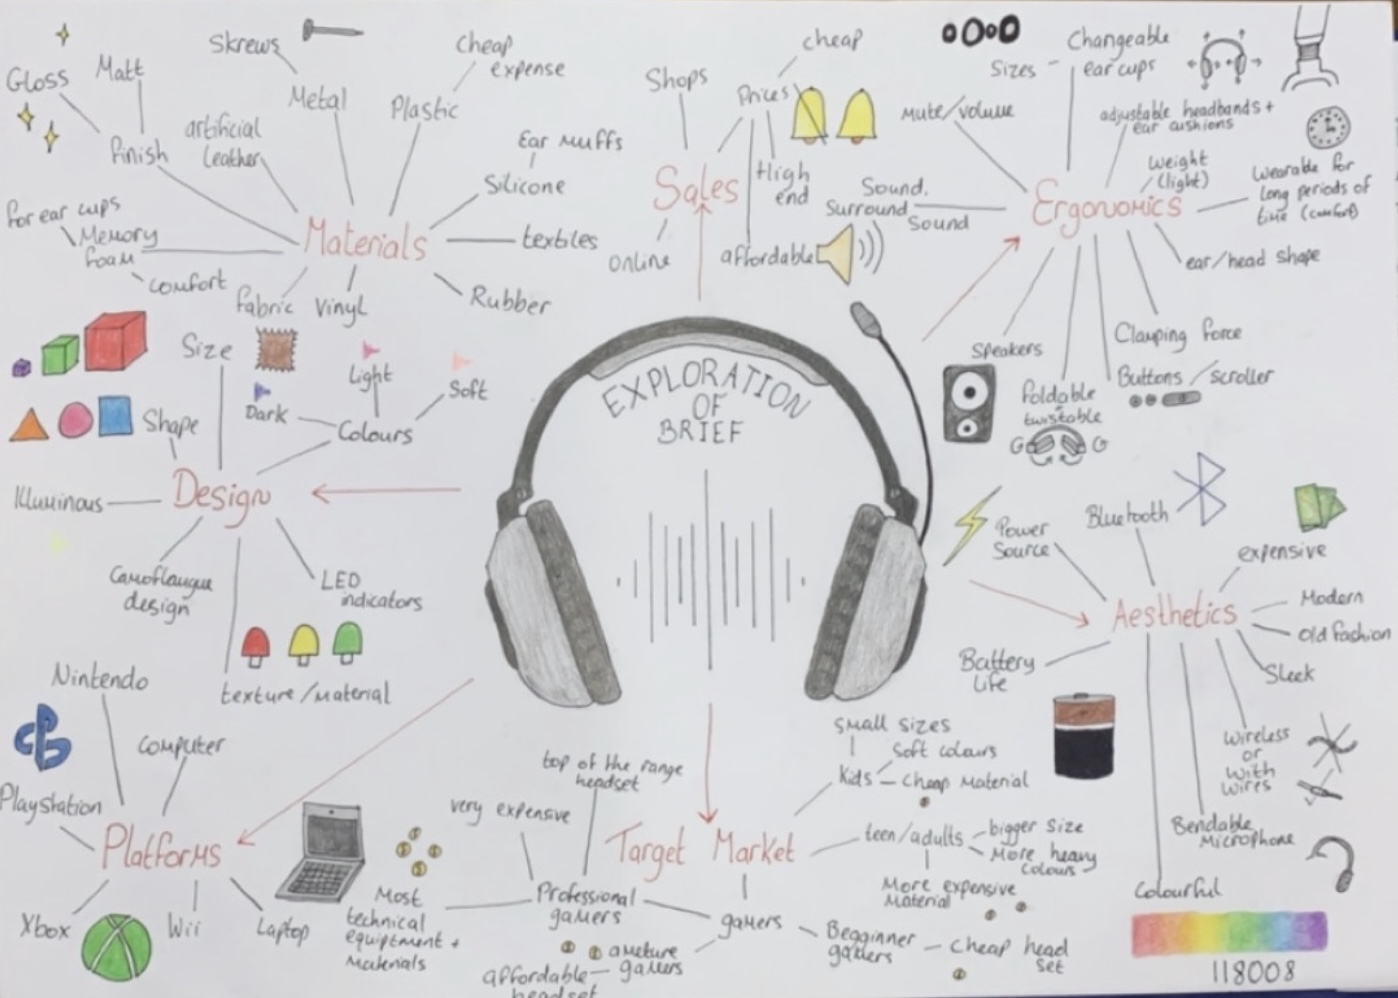 Skrews
Gloss
Matt
Metal
Cheap
expense
Plastic
finish
artificial
leather
Ear Muffs
Silicone
for ear cups
Memory
foam
comfort
Materials
textiles
fabric
Vinyl
Rubber
Shops
Prices
cheap
Sales
High
end
online
affordable
Sizes
Changeable
ear cups
Mute/volume
adjustable headbands +
ear cushions
weight
(light)
Wearable for
long periods of
time (comfort)
Sound.
Surround
Sound
Ergonomics
ear/head shape
Speakers
Clamping force
foldable
twistable
Buttons/scroller
Size
Light
Soft
Dark
Colours
Shape
Design
Illuminous
Camoflaugue
design
LED
indicators
texture/material
EXPLORATION
OF
BRIEF
Power
Source
Bluetooth
expensive
Aesthetics
Modern
old fashion
Sleek
Battery
Life
Wireless
or
with
wires
Bendable
Microphone
Colourful
118008
Nintendo
Computer
Playstation
Platforms
Xbox
Wii
Laptop
top of the range
headset
very expensive
Target Market
Small sizes
Soft colours
Kids
Cheap Material
teen/adults
bigger size
More heavy
colours
More expensive
Material
Most
technical
equiptment +
Materials
Professional
gamers
gamers
ameture
gamers
affordable
headset
Begginner
gamers
cheap head
set